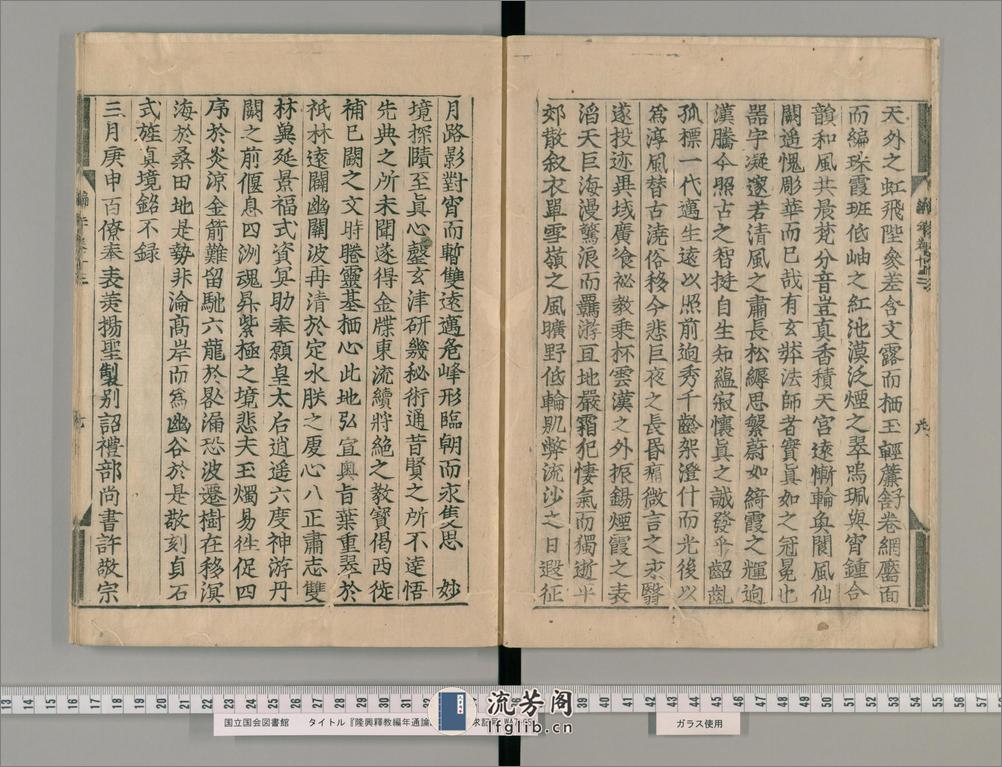 天外之虹飛陛叅差含文露而栖玉輕簾舒卷網靨面
而編珠霞班低岫之紅池漠泛煙之翠鳴珮與宵鍾合
韻和風共晨梵分音豈直香積天宮遠慚輪奐閬風仙
闕遥愧彫華而已哉有玄弉法師者寳真如之冠冕也
器宇凝邃若清風之肅長松縟思繁蔚如綺霞之輝逈
漢騰今照古之智挺自生知蘊寂懷真之誠發乎齠齔
孤標一代邁生遠以照前逈秀千齡架澄什而光後以
爲淳風替古澆俗移今悲巨夜之長昏痛微言之永翳
遂投迹異域廣飡祕教乗杯雲漢之外振錫煙霞之表
滔天巨海漫驚浪而羈游亘地嚴霜犯悽氣而獨逝平
郊散叙衣單雪嶺之風曠野低輪肌弊流沙之日遐征
月路影對宵而暫雙遠邁危峰形臨朝而永隻思 妙
境探賾至真心罄玄津研幾秘術通昔賢之所不逹悟
先典之所未聞遂得金牒東流續將絶之教寳偈西徙
補已闕之文時睠靈基栖心此地弘宣奥旨葉重翠於
祇林遠闢幽關波再清於定水朕之虔心八正肅志雙
林兾延景福式資冥助奉願皇太后逍遥六度神游丹
闕之前偃息四洲魂昇紫極之境悲夫玉燭易徃促四
序於炎涼金箭難留馳六龍於晷漏恐波遷樹在移溟
海於桑田地是勢非淪髙岸而爲幽谷於是敬刻貞石
式旌真境銘不録
三月庚申百僚奉表羙揚聖製别詔禮部尚書許敬宗
国立国会図書館 タイトル『隆興釋教編年通論』
ガラス使用
流芳阁
lfglib.cn